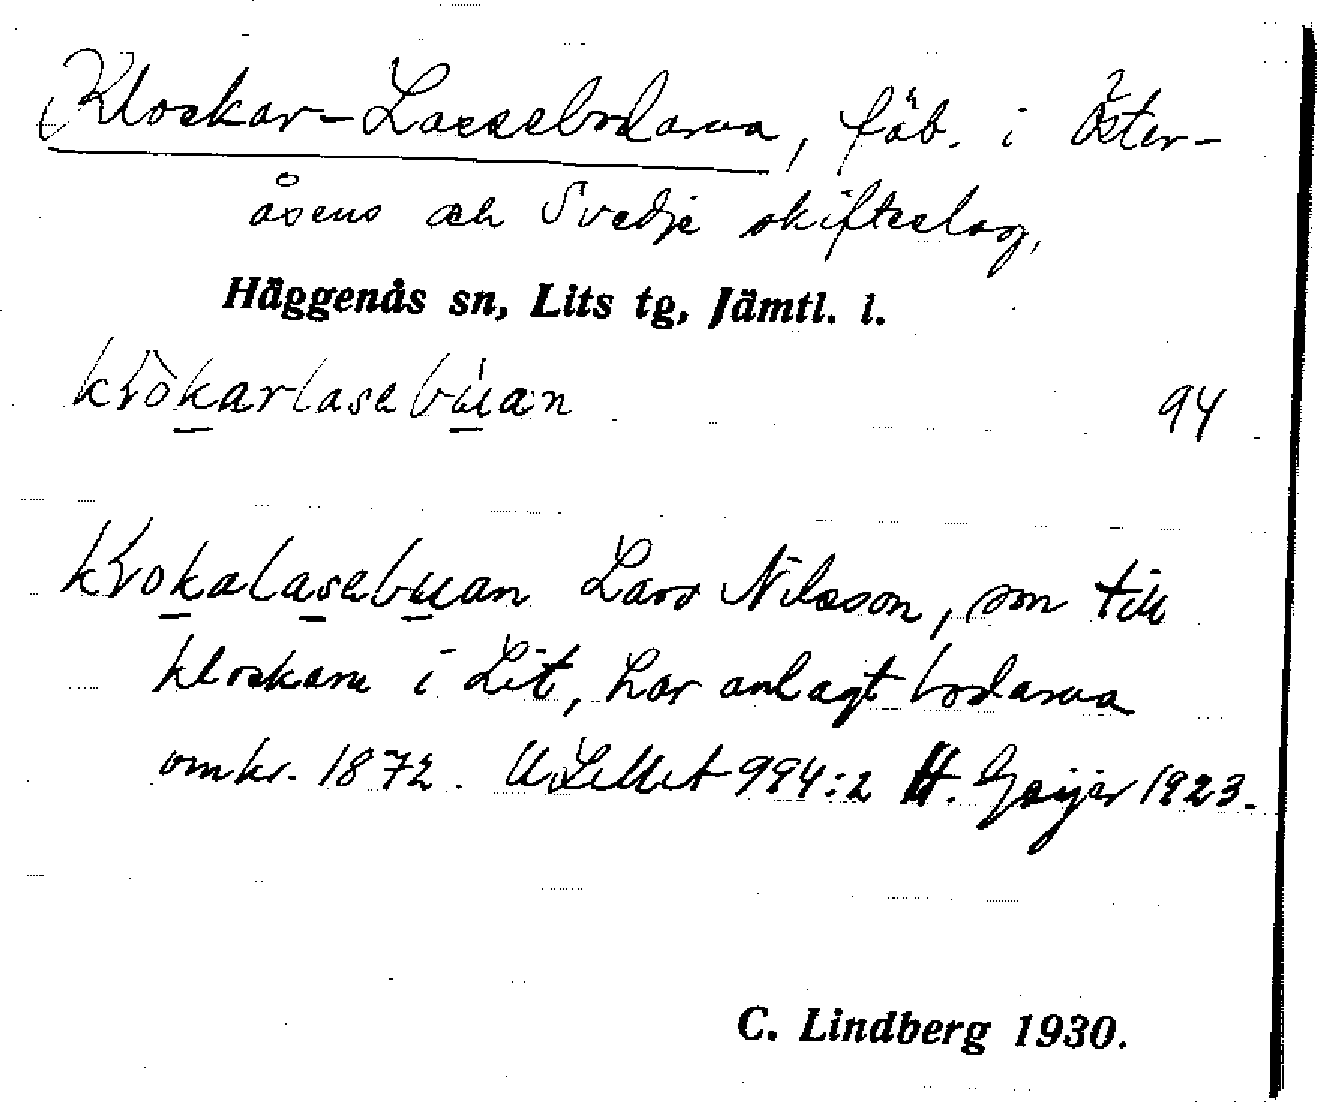 Klockar-Lassebodarna, fäb. i Öster-
åsens och Svedje skifteslag,
Häggenås sn, Lits tg, Jämtl. l.
klòkarlasabúan 94
Klokalasabuan Lars Nilsson, son till
klockarn i Lit, har anlagt bodarna
omkr. 1872. ULMA 994:2 H. Geijer 1923.
C. Lindberg 1930.